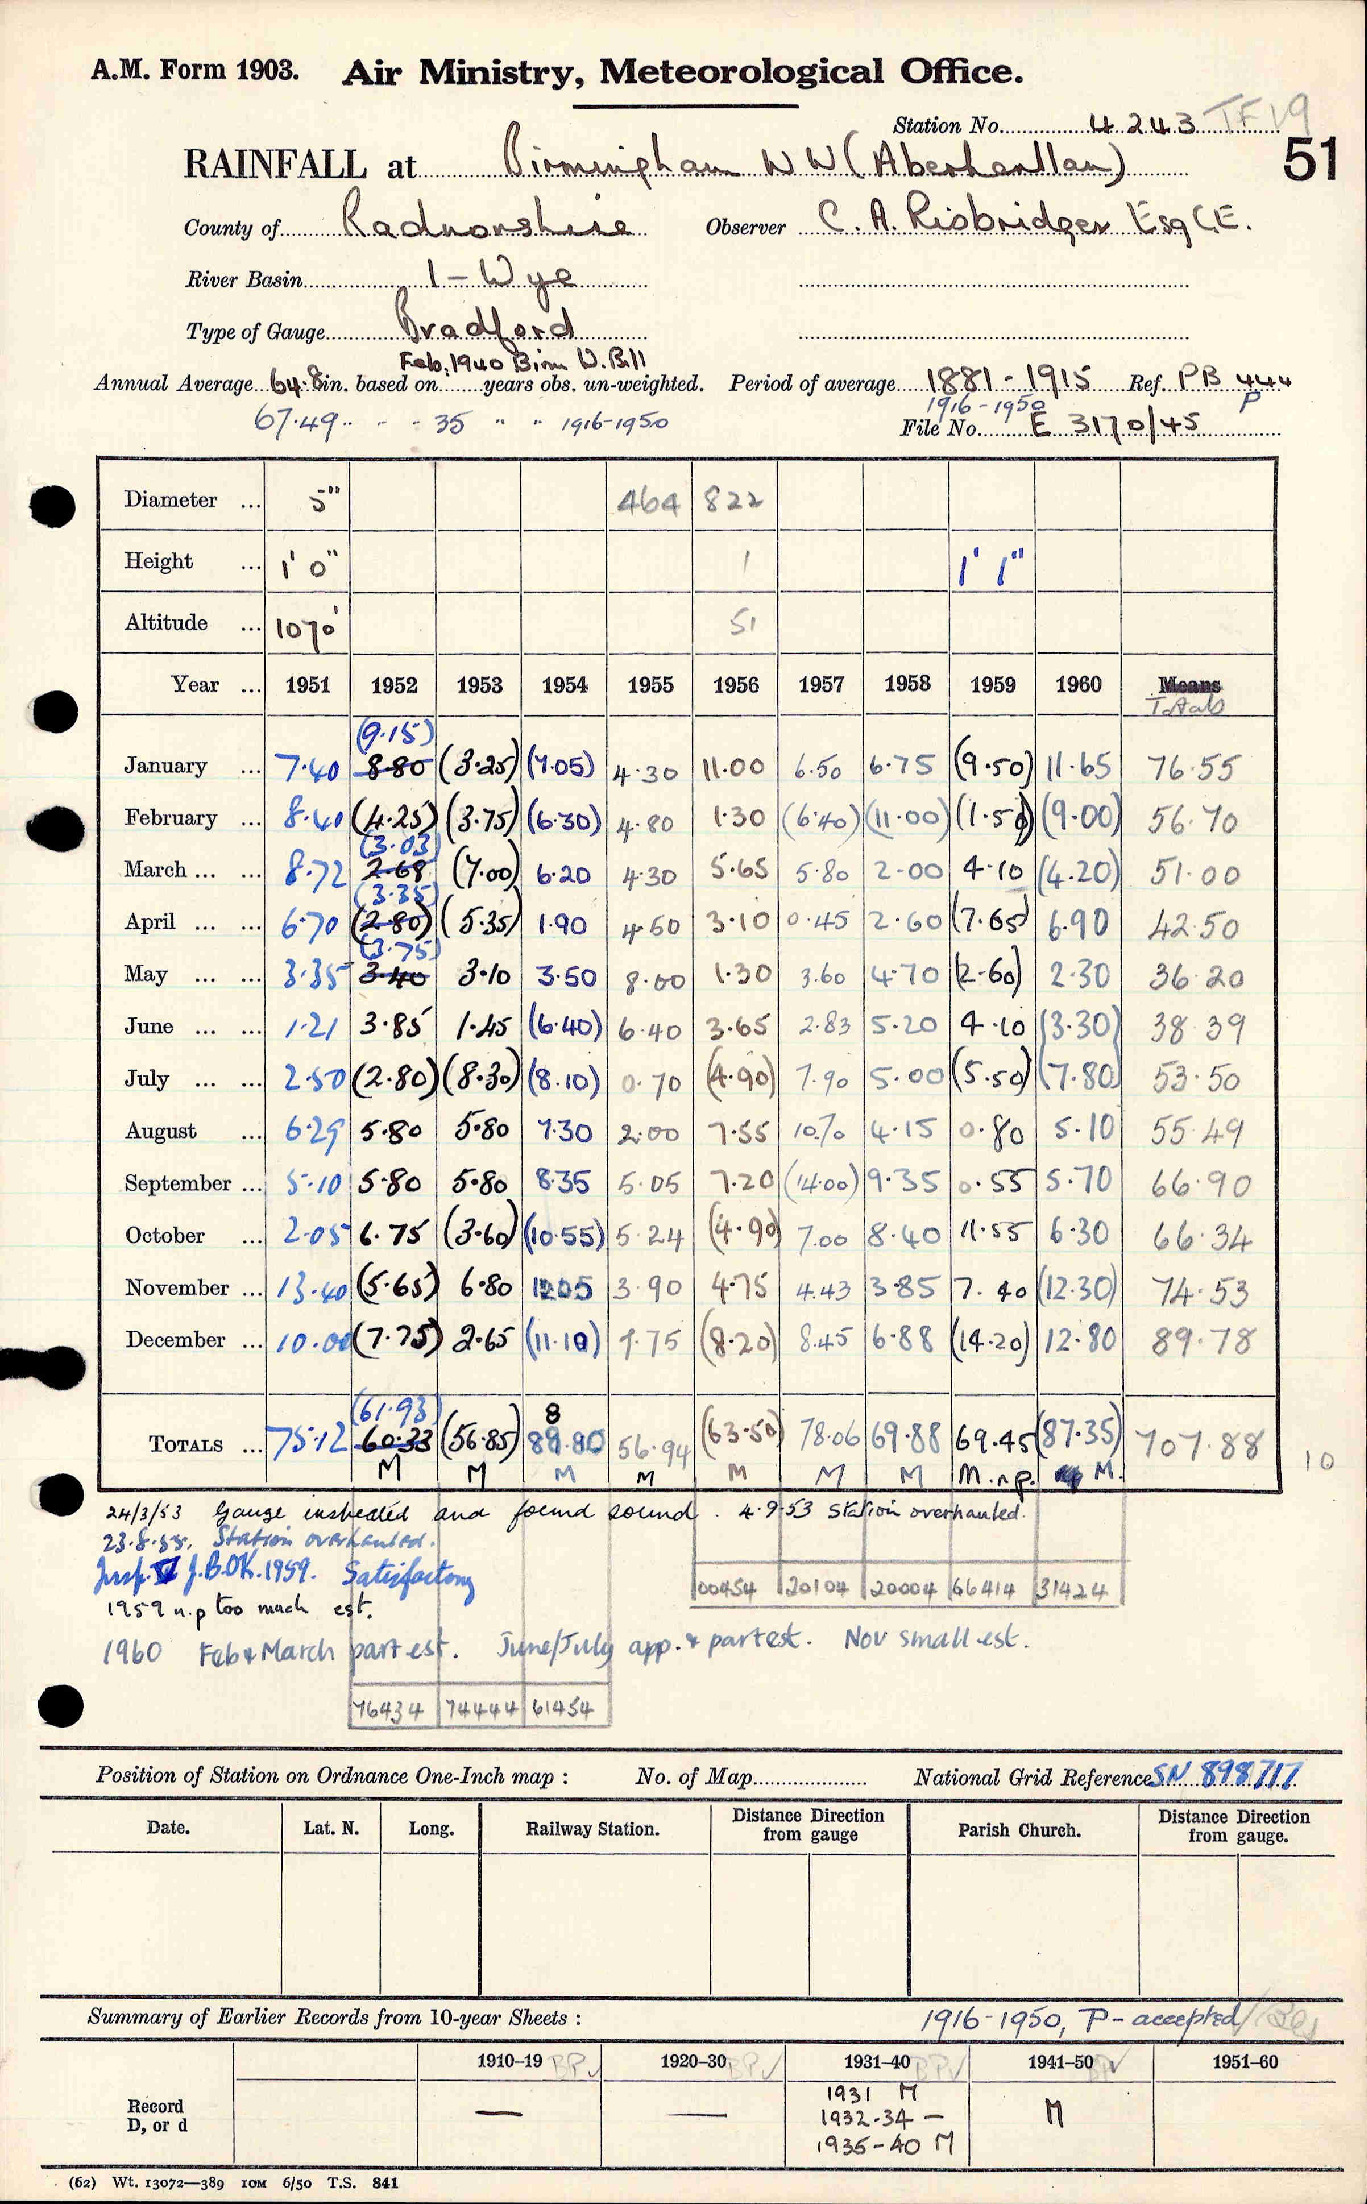 A.M. Form 1903. Air Ministry, Meteorological Office.
Station No. 4243 TF 19
RAINFALL at Birmingham W W (Aberhanllan) 51
County of Radnorshire Observer C. A. Risbridger Esq C.E.
River Basin 1 - Wye
Type of Gauge Bradford
Feb. 1940 Birm W. Bill
Annual Average 64.8 in. based on years obs. un-weighted. Period of average 1881-1915 Ref. PB 444
67.49 " - - 35 " " 1916-1950 1916-1950 P
File No. E 3170/45
Diameter ... 5" 464 822
Height ... 1' 0" 1 1' 1"
Altitude ... 1070' 51
Year ... 1951 1952 1953 1954 1955 1956 1957 1958 1959 1960 Means
Totals
(9.15)
January ... 7.40 8.80 (3.25) (7.05) 4.30 11.00 6.50 6.75 (9.50) 11.65 76.55
February ... 8.40 (4.25) (3.75) (6.30) 4.80 1.30 (6.40) (11.00) (1.50) (9.00) 56.70
(3.03)
March ... ... 8.72 2.68 (7.00) 6.20 4.30 5.65 5.80 2.00 4.10 (4.20) 51.00
(3.35)
April ... ... 6.70 (2.80) (5.35) 1.90 4.50 3.10 0.45 2.60 (7.65) 6.90 42.50
(3.75)
May ... ... 3.35 3.40 3.10 3.50 8.00 1.30 3.60 4.70 (2.60) 2.30 36.20
June ... ... 1.21 3.85 1.45 (6.40) 6.40 3.65 2.83 5.20 4.10 (3.30) 38.39
July ... ... 2.50 (2.80) (8.30) (8.10) 0.70 (4.90) 7.90 5.00 (5.50) (7.80) 53.50
August ... 6.29 5.80 5.80 7.30 2.00 7.55 10.70 4.15 0.80 5.10 55.49
September ... 5.10 5.80 5.80 8.35 5.05 7.20 (14.00) 9.35 0.55 5.70 66.90
October ... 2.05 6.75 (3.60) (10.55) 5.24 (4.90) 7.00 8.40 11.55 6.30 66.34
November ... 13.40 (5.65) 6.80 12.05 3.90 4.75 4.43 3.85 7.40 (12.30) 74.53
December ... 10.00 (7.75) 2.65 (11.10) 9.75 (8.20) 8.45 6.88 (14.20) 12.80 89.78
(61.93) 8
TOTALS ... 75.12 60.33 (56.85) 89.80 56.94 (63.50) 78.06 69.88 69.45 (87.35) 707.88 10
M M M M M M M M.n.p. M.
24/3/53 Gauge inspected and found sound. 4.9.53 Station overhauled.
23.8.55. Station overhauled.
Insp. J.B. OK. 1959. Satisfactory
00454 20104 20004 66414 31424
1959 n.p too much est.
1960 Feb & March part est. June/July app. & part est. Nov small est.
76434 74444 61454
Position of Station on Ordnance One-Inch map : No. of Map National Grid Reference SN 898717
Date. Lat. N. Long. Railway Station. Distance Direction from gauge Parish Church. Distance Direction from gauge.
Summary of Earlier Records from 10-year Sheets : 1916-1950, P - accepted
1910-19 BPV 1920-30 BPV 1931-40 BPV 1941-50 BPV 1951-60
Record D, or d — — 1931 M M
1932-34 —
1935-40 M
(62) Wt. 13072—389 10M 6/50 T.S. 841